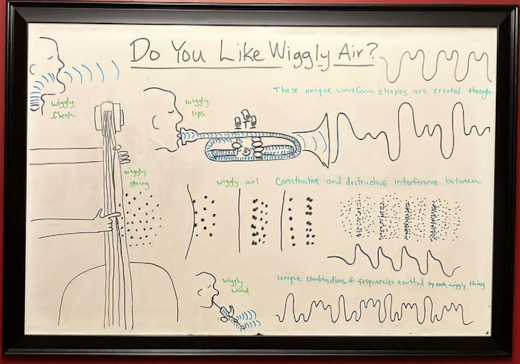 Do You Like Wiggly Air?
wiggly
flesh
wiggly
lips
These unique waveform shapes are created through
wiggly
string
wiggly air!
Constructive and destructive interference between
wiggly
unique combinations of frequencies emitted by each wiggly thing